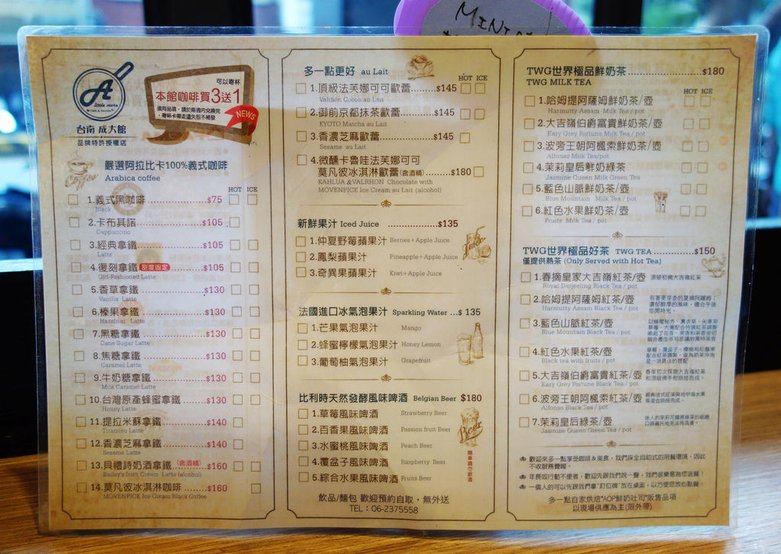 MINI
A
台南 成大館
品牌特許授權店
可以寄杯
本館咖啡買3送1
NEWS
嚴選阿拉比卡100%義式咖啡
Arabica coffee
HOT ICE
1.義式黑咖啡 $75
Black
2.卡布其諾 $105
Cappuccino
3.經典拿鐵 $105
Latte
4.復刻拿鐵 $105
Old-Fashioned Latte
5.香草拿鐵 $130
Vanilla Latte
6.榛果拿鐵 $130
Hazelnut Latte
7.黑糖拿鐵 $130
Cane Sugar Latte
8.焦糖拿鐵 $130
Caramel Latte
9.牛奶糖拿鐵 $130
Milk Caramel Latte
10.台灣原產蜂蜜拿鐵 $130
Honey Latte
11.提拉米蘇拿鐵 $140
Tiramisu Latte
12.香濃芝麻拿鐵 $140
Sesame Latte
13.貝禮詩奶酒拿鐵(含酒精) $160
Bailey's Irish Cream Latte (alcohol)
14.莫凡彼冰淇淋咖啡 $160
MÖVENPICK Ice Cream Black Coffee
多一點更好 au Lait
HOT ICE
1.頂級法芙娜可可歐蕾 $145
Valrhon Cocoa au Lait
2.御前京都抹茶歐蕾 $145
KYOTO Matcha au Lait
3.香濃芝麻歐蕾 $145
Sesame au Lait
4.微醺卡魯哇法芙娜可可
莫凡彼冰淇淋歐蕾(含酒精) $180
KAHLUA & VALRHON Chocolate with
MÖVENPICK Ice Cream au Lait (alcohol)
新鮮果汁 Iced Juice $135
1.仲夏野莓蘋果汁 Berries+Apple Juice
2.鳳梨蘋果汁 Pineapple+Apple Juice
3.奇異果蘋果汁 Kiwi+Apple Juice
法國進口冰氣泡果汁 Sparkling Water $135
1.芒果氣泡果汁 Mango
2.蜂蜜檸檬氣泡果汁 Honey Lemon
3.葡萄柚氣泡果汁 Grapefruit
比利時天然發酵風味啤酒 Belgian Beer $180
1.草莓風味啤酒 Strawberry Beer
2.百香果風味啤酒 Passion fruit Beer
3.水蜜桃風味啤酒 Peach Beer
4.覆盆子風味啤酒 Raspberry Beer
5.綜合水果風味啤酒 Fruits Beer
Beer
飲品/麵包 歡迎預約自取,無外送
TEL:06-2375558
TWG世界極品鮮奶茶 $180
TWG MILK TEA
HOT ICE
1.哈姆提阿薩姆鮮奶茶/壺
Harmutty Assam Milk Tea / pot
2.大吉嶺伯爵富貴鮮奶茶/壺
Easy Grey Fortune Milk Tea / pot
3.波旁王朝阿楓索鮮奶茶/壺
Alfonso Milk Tea / pot
4.茉莉皇后鮮奶綠茶
Jasmine Queen Milk Green Tea
5.藍色山脈鮮奶茶/壺
Blue Mountain Milk Tea / pot
6.紅色水果鮮奶茶/壺
Fruits Milk Tea / pot
TWG世界極品好茶 TWG TEA $150
僅提供熱茶 (Only Served with Hot Tea)
1.春摘皇家大吉嶺紅茶/壺
Royal Darjeeling Black Tea / pot
2.哈姆提阿薩姆紅茶/壺
Harmutty Assam Black Tea / pot
3.藍色山脈紅茶/壺
Blue Mountain Black Tea / pot
4.紅色水果紅茶/壺
Black tea with fruits / pot
5.大吉嶺伯爵富貴紅茶/壺
Easy Grey Fortune Black Tea / pot
6.波旁王朝阿楓索紅茶/壺
Alfonso Black Tea / pot
7.茉莉皇后綠茶/壺
Jasmine Queen Green Tea / pot
多一點自家烘焙"AOP鮮奶吐司"販售品項
以現場供應為主(限外帶)